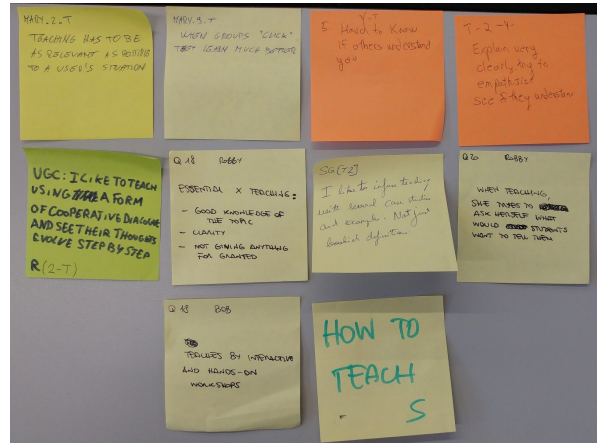 MARY.2.T
TEACHING HAS TO BE
AS RELEVANT AS POSSIBLE
TO A USER'S SITUATION
MARY.3.T
WHEN GROUPS "CLICK"
THEY LEARN MUCH BETTER
Y-T
5. Hard to know
if others understand
you
T-2-Y-
Explain very
clearly try to
empathise
see if they understand
UGC: I LIKE TO TEACH
USING A FORM
OF COOPERATIVE DIALOGUE
AND SEE THEIR THOUGHTS
EVOLVE STEP BY STEP
R(2-T)
Q18 ROBBY
ESSENTIAL X TEACHING:
- GOOD KNOWLEDGE OF
THE TOPIC
- CLARITY
- NOT GIVING ANYTHING
FOR GRANTED
SG[T2]
I like to infuse teaching
with several case studies
and examples. Not just
definition
Q20 ROBBY
WHEN TEACHING,
SHE TRIES TO
ASK HERSELF WHAT
WOULD STUDENTS
WANT TO TELL THEM
Q18 BOB
TEACHES BY INTERACTIVE
AND HANDS-ON
WORKSHOPS
HOW TO
TEACH
S